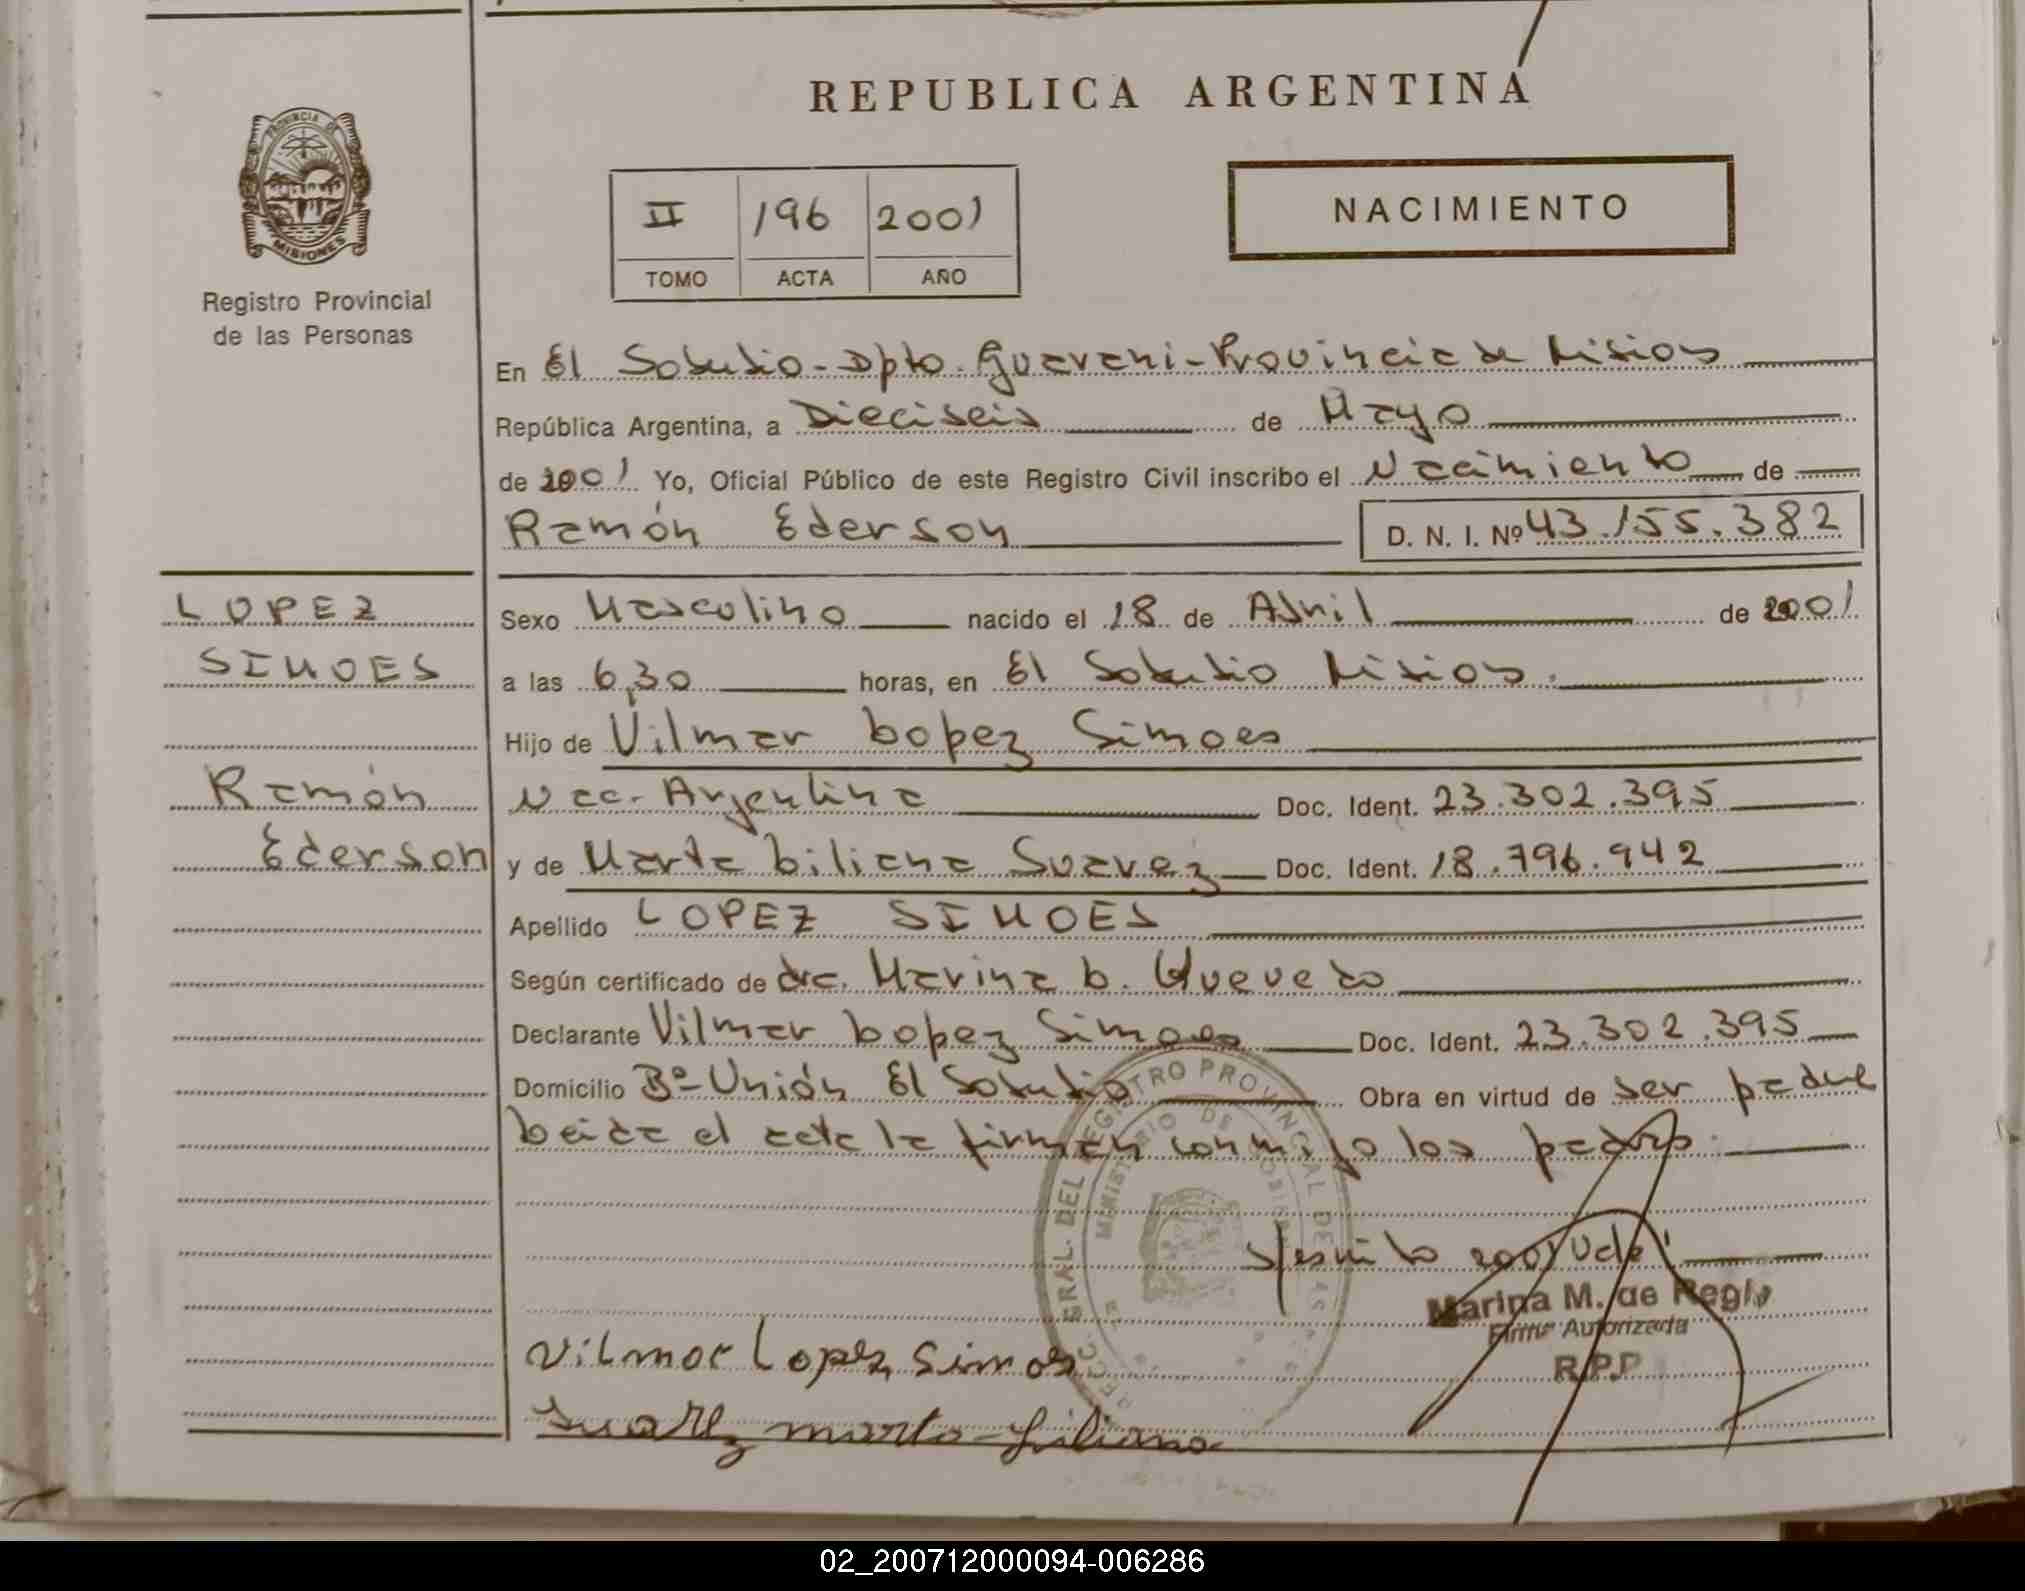 REPUBLICA ARGENTINA
PROVINCIA DE
MISIONES
Registro Provincial
de las Personas
II 196 2001
TOMO ACTA AÑO
NACIMIENTO
En El Soberbio - Dpto. Guarani - Provincia de Misiones
República Argentina, a Dieciseis de Mayo
de 2001 Yo, Oficial Público de este Registro Civil inscribo el Nacimiento de
Ramón Ederson D. N. I. Nº 43.155.382
LOPEZ
SIMOES
Ramón
Ederson
Sexo Masculino nacido el 18 de Abril de 2001
a las 6,30 horas, en El Soberbio Misiones.
Hijo de Vilmar Lopez Simoes
Nac. Argentina Doc. Ident. 23.302.395
y de Marta Liliana Suarez Doc. Ident. 18.796.942
Apellido LOPEZ SIMOES
Según certificado de dra. Marina L. Quevedo
Declarante Vilmar Lopez Simoes Doc. Ident. 23.302.395
Domicilio Bº Unión El Soberbio Obra en virtud de ser padre
Leida el acta la firman conmigo los padres.
s/escrito 2001 Vale
Marina M. de Regla
Firma Autorizada
R.P.P
Vilmar Lopez Simoes
Suarez marta Liliana
02_200712000094-006286